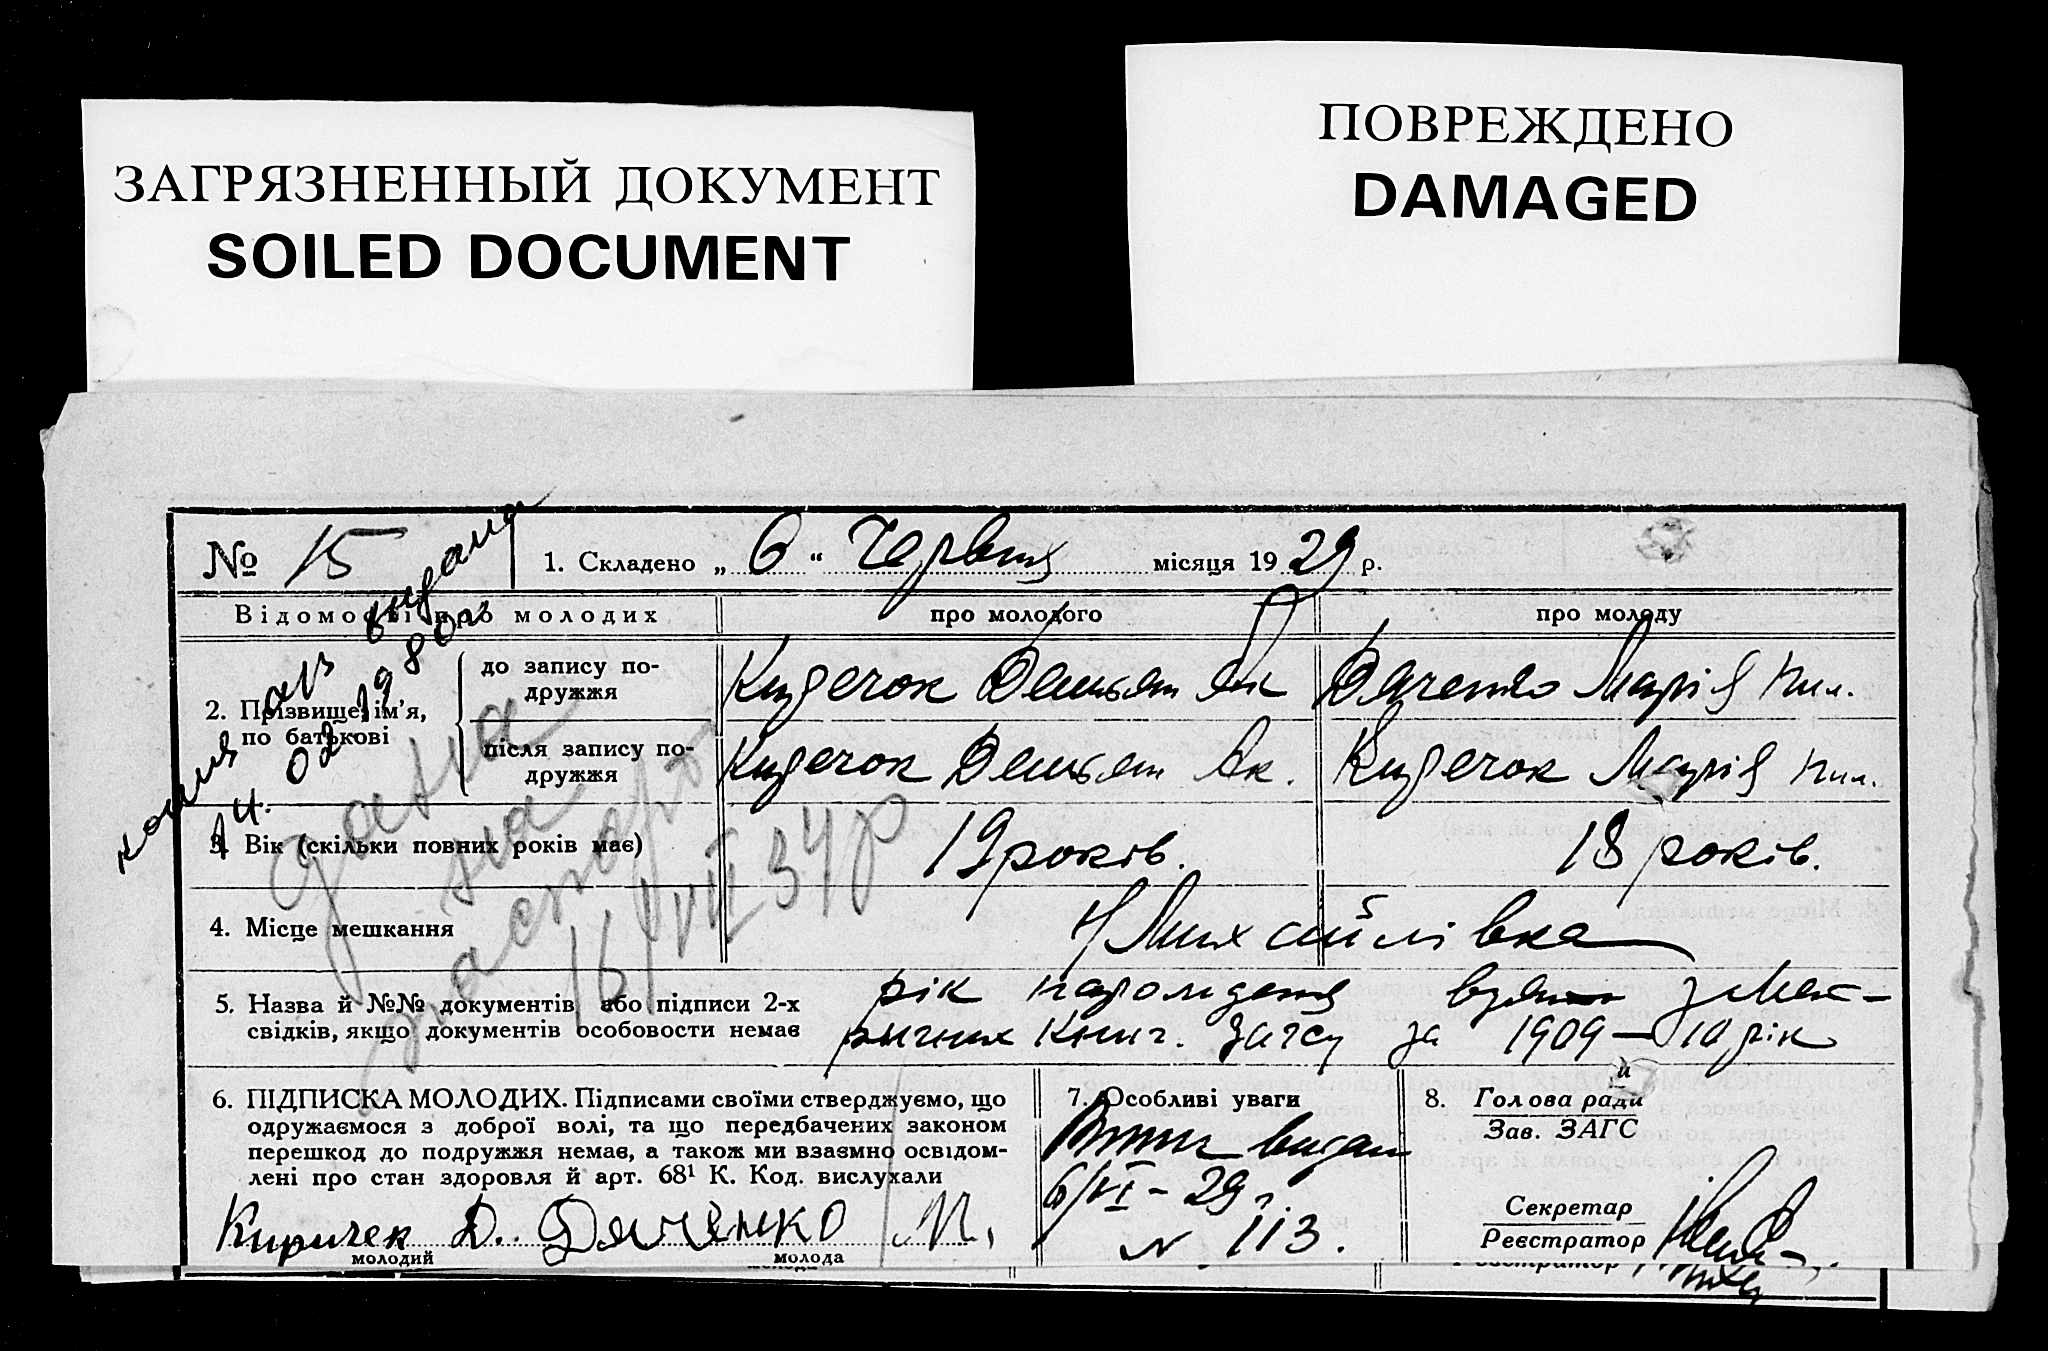 ЗАГРЯЗНЕННЫЙ ДОКУМЕНТ
SOILED DOCUMENT
ПОВРЕЖДЕНО
DAMAGED
№ 15
1. Складено „ 6 “ Червня місяця 1929 р.
Відомості про молодих
про молодого
про молоду
2. Прізвище, ім'я, по батькові
до запису по-
дружжя
Дяченко Марія Пил.
після запису по-
дружжя
Марія Пил.
3. Вік (скільки повних років має)
19 років.
18 років.
4. Місце мешкання
Михайлівка
5. Назва й №№ документів або підписи 2-х
свідків, якщо документів особовости немає
рік народження взято з мет-
ричних книг. Загсу за 1909 — 10 рік
6. ПІДПИСКА МОЛОДИХ. Підписами своїми стверджуємо, що
одружаємося з доброї волі, та що передбачених законом
перешкод до подружжя немає, а також ми взаємно освідом-
лені про стан здоровля й арт. 68¹ К. Код. вислухали
Киричек Д. Дяченко М.
молодий
молода
7. Особливі уваги
Витяг видан
6/VI - 29 г.
N 113.
8. Голова ради
Зав. ЗАГС
Секретар
Реєстратор
копия а/з выдана
14. 02. 1980г
дана
на
паспорт
16/VII 34р